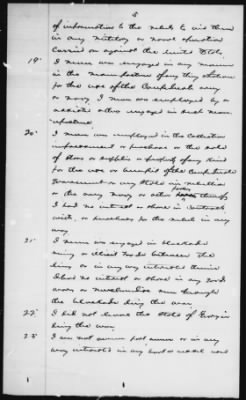 5
of information to the rebels to aid them
in any military or naval operation
carried on against the United States.
19" I never was engaged in any manner
in the manufacture of any thing
for the use of the Confederate army
or navy I never was employed by or
engaged in such man-
ufacture.
20" I never was employed in the collection
impressment or purchase or the sale
of stores or supplies or property of any kind
for the use or benefit of the Confederate
Government or any State in rebellion
or the army navy or other thereof
I had no interest or share in contracts
with, or purchases for the rebels in any
way.
21" I never was engaged in blockade
running or illicit trade between the
lines or in any way interested therein
I had no interest or share in any goods
wares or merchandise run through
the blockade during the war.
22" I did not leave the State of Georgia
during the war.
23" I am not never owner or in any
way interested in any boat or vessel used
1
1